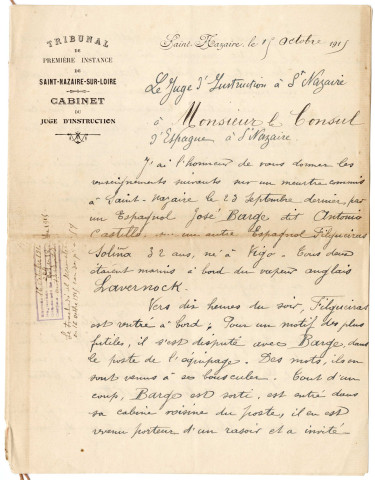 TRIBUNAL
DE
PREMIÈRE INSTANCE
DE
SAINT-NAZAIRE-SUR-LOIRE
CABINET
DU
JUGE D'INSTRUCTION
Saint-Nazaire, le 15 Octobre 1915
Le Juge d'Instruction à St Nazaire
à Monsieur le Consul
d'Espagne à St Nazaire
J'ai l'honneur de vous donner les
renseignements suivants sur un meurtre commis
à Saint-Nazaire le 23 Septembre dernier par
un Espagnol José Barge dit Antonio
Castello sur un autre Espagnol Filgueiras
Soliña 32 ans, né à Vigo. Tous deux
étaient marins à bord du vapeur anglais
Lavernock.
Vers dix heures du soir, Filgueiras
est rentré à bord; Pour un motif des plus
futiles, il s'est disputé avec Barge, dans
le poste de l'équipage. Des mots, ils en
sont venus à se bousculer. Tout d'un
coup, Barge est sorti, est entré dans
sa cabine voisine du poste, il en est
revenu porteur d'un rasoir et a invité